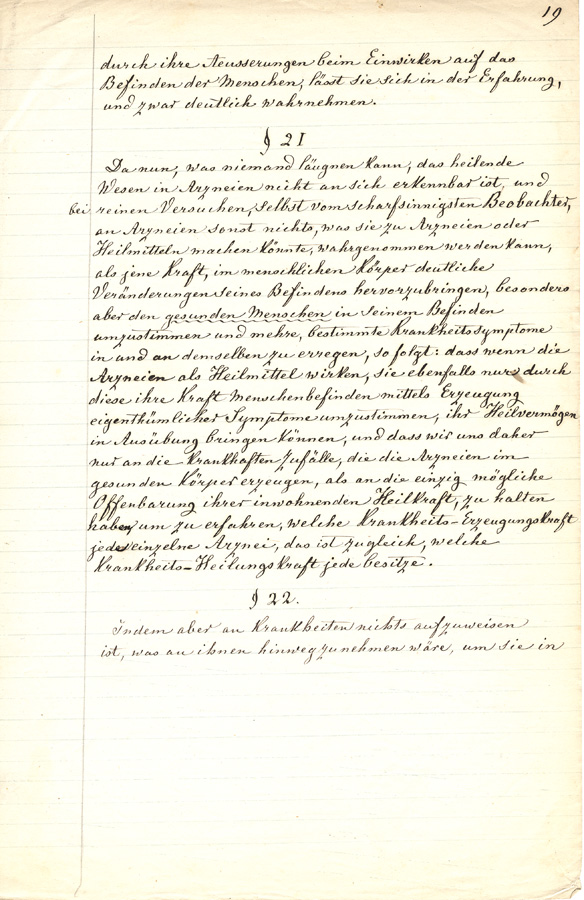 19
durch ihre Aeusserungen beim Einwirken auf das
Befinden der Menschen, lässt sie sich in der Erfahrung,
und zwar deutlich wahrnehmen.
§ 21
Da nun, was niemand läugnen kann, das heilende
Wesen in Arzneien nicht an sich erkennbar ist, und
bei reinen Versuchen, selbst vom scharfsinnigsten Beobachter,
an Arzneien sonst nichts, was sie zu Arzneien oder
Heilmitteln machen könnte, wahrgenommen werden kann,
als jene Kraft, im menschlichen Körper deutliche
Veränderungen seines Befindens hervorzubringen, besonders
aber den gesunden Menschen in seinem Befinden
umzustimmen und mehre, bestimmte Krankheitssymptome
in und an demselben zu erregen, so folgt: dass wenn die
Arzneien als Heilmittel wirken, sie ebenfalls nur durch
diese ihre Kraft Menschenbefinden mittels Erzeugung
eigenthümlicher Symptome umzustimmen, ihr Heilvermögen
in Ausübung bringen können, und dass wir uns daher
nur an die krankhaften Zufälle, die die Arzneien im
gesunden Körper erzeugen, als an die einzig mögliche
Offenbarung ihrer inwohnenden Heilkraft, zu halten
haben, um zu erfahren, welche Krankheits-Erzeugungskraft
jede einzelne Arznei, das ist zugleich, welche
Krankheits-Heilungskraft jede besitze.
§ 22.
Indem aber an Krankheiten nichts aufzuweisen
ist, was an ihnen hinwegzunehmen wäre, um sie in